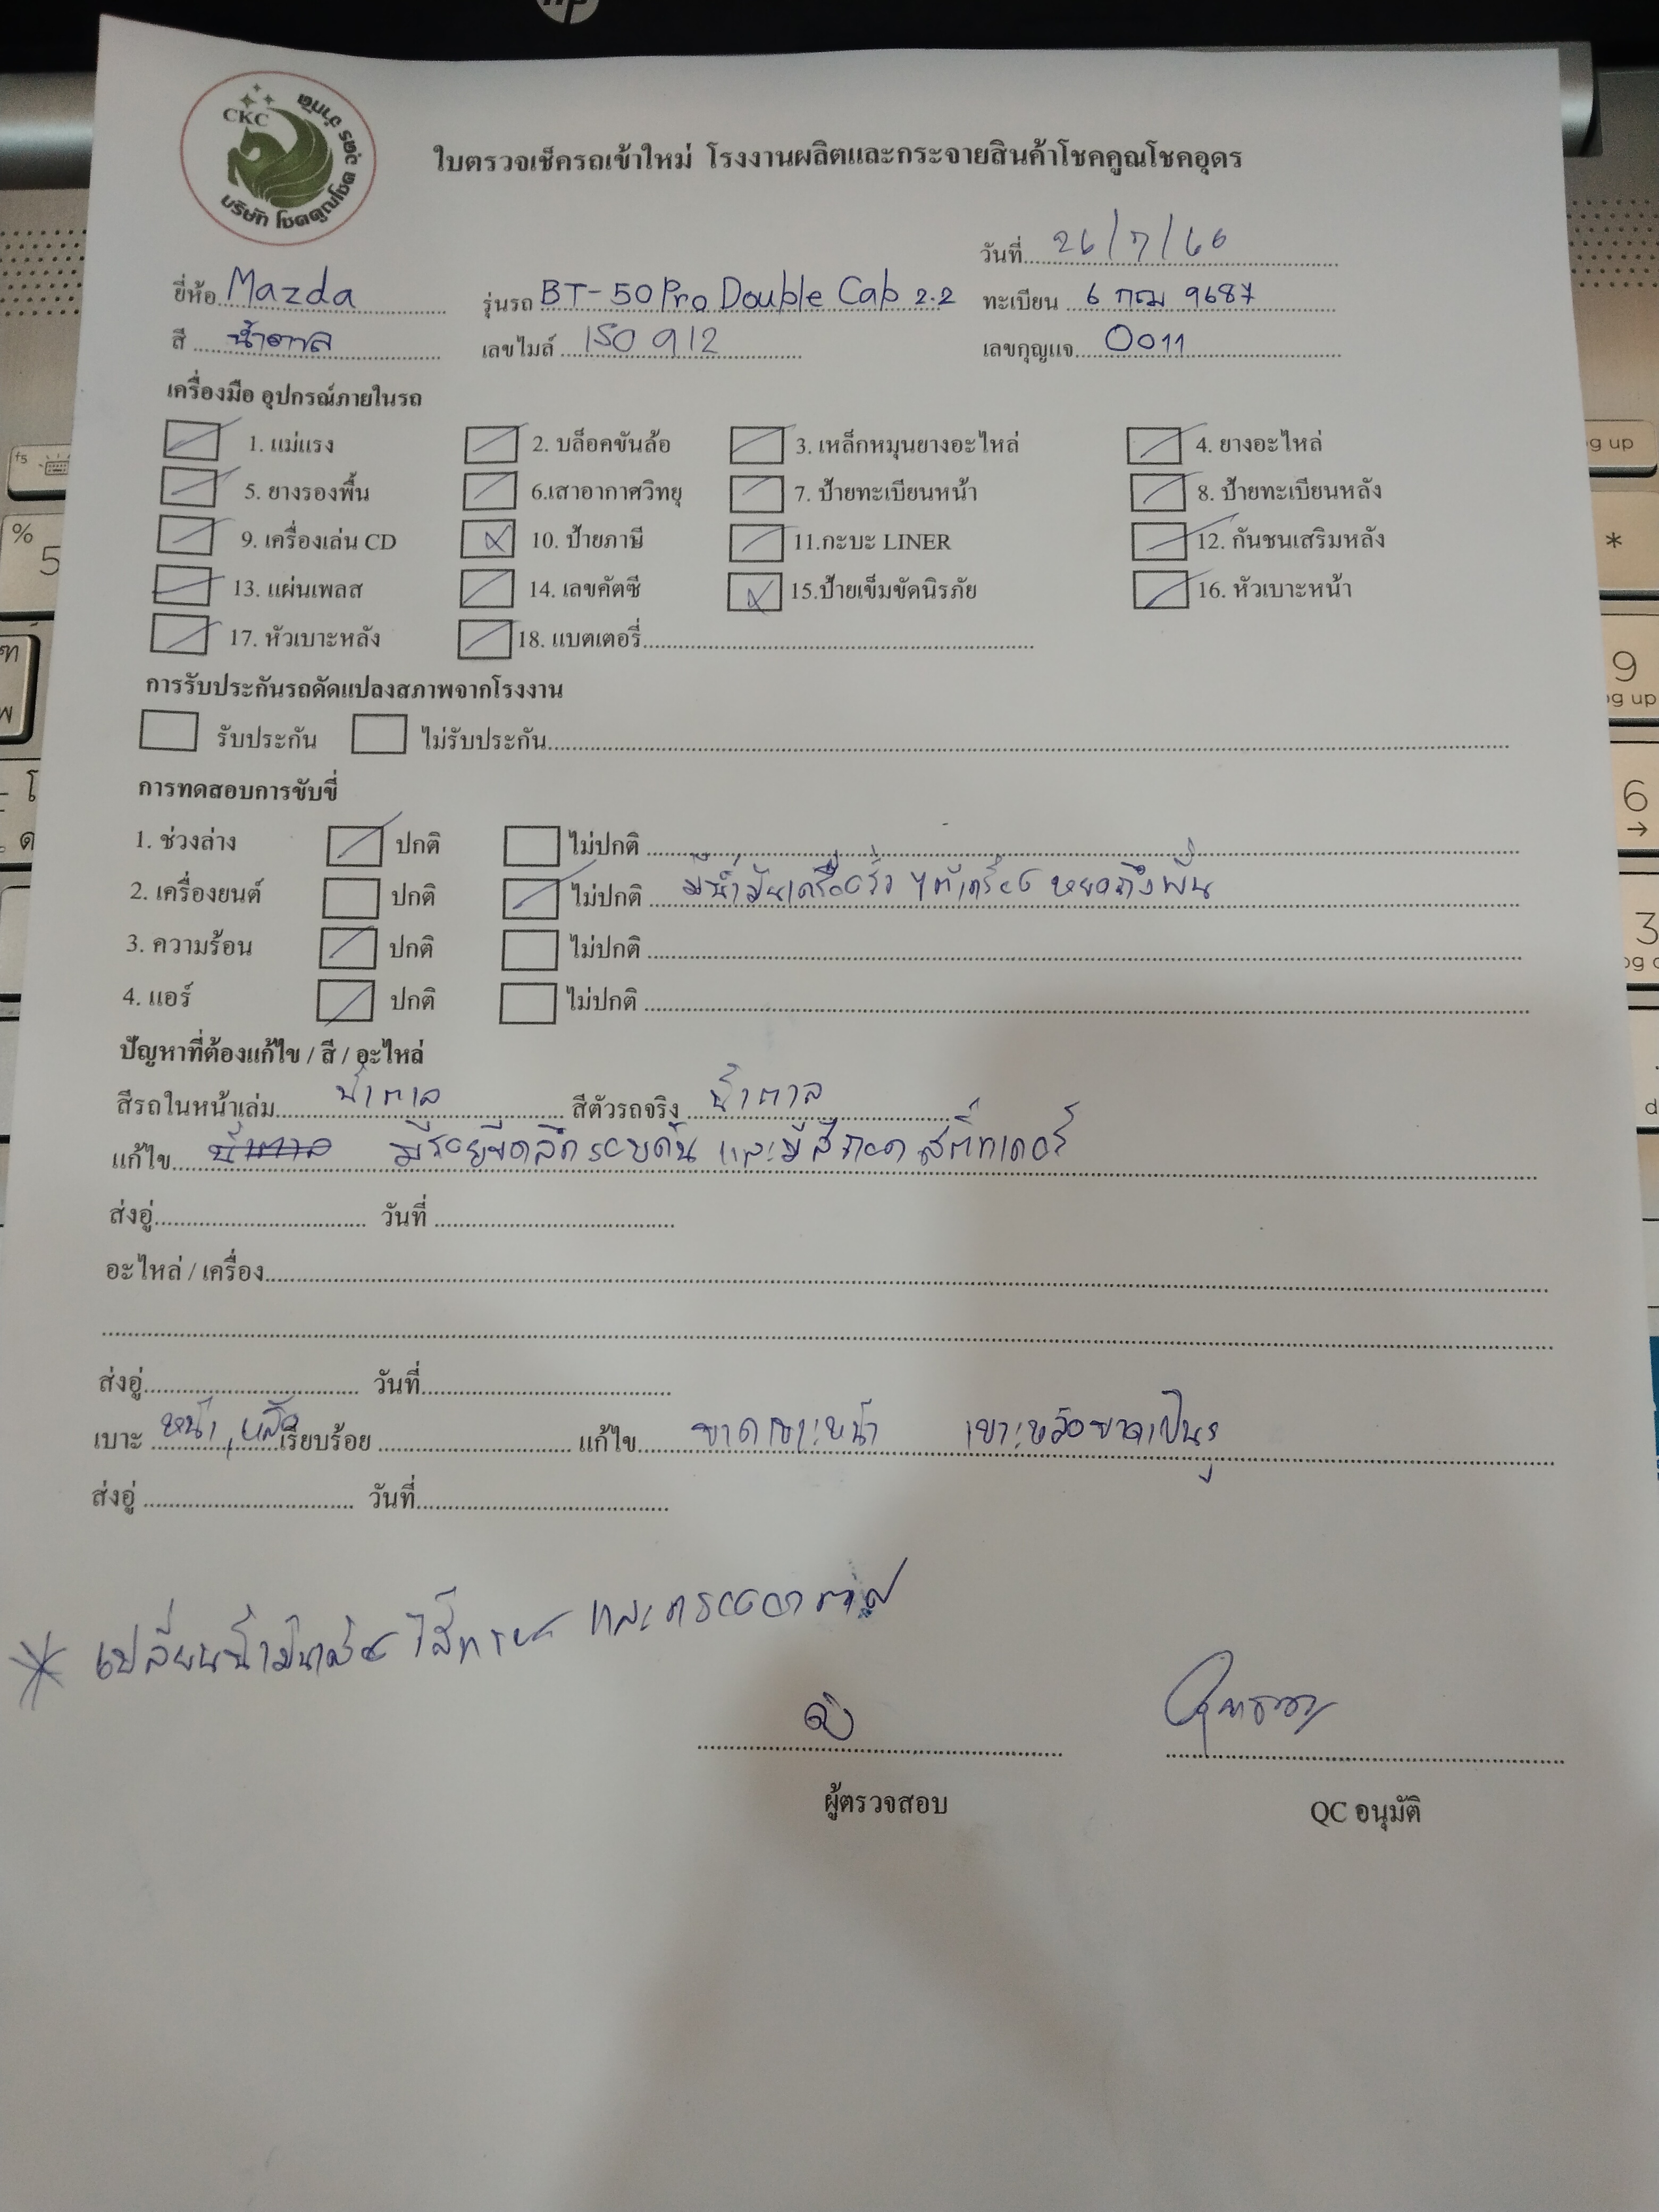 CKC
บริษัท โชคคูณโชค อุดร จำกัด
ใบตรวจเช็ครถเข้าใหม่ โรงงานผลิตและกระจายสินค้าโชคคูณโชคอุดร
วันที่ 26/7/66
ยี่ห้อ Mazda รุ่นรถ BT-50 Pro Double Cab 2.2 ทะเบียน 6 กฌ 9687
สี น้ำตาล เลขไมล์ 150 912 เลขกุญแจ 0011
เครื่องมือ อุปกรณ์ภายในรถ
1. แม่แรง 2. บล็อคขันล้อ 3. เหล็กหมุนยางอะไหล่ 4. ยางอะไหล่
5. ยางรองพื้น 6.เสาอากาศวิทยุ 7. ป้ายทะเบียนหน้า 8. ป้ายทะเบียนหลัง
9. เครื่องเล่น CD 10. ป้ายภาษี 11.กะบะ LINER 12. กันชนเสริมหลัง
13. แผ่นเพลส 14. เลขคัตซี 15.ป้ายเข็มขัดนิรภัย 16. หัวเบาะหน้า
17. หัวเบาะหลัง 18. แบตเตอรี่
การรับประกันรถดัดแปลงสภาพจากโรงงาน
รับประกัน ไม่รับประกัน
การทดสอบการขับขี่
1. ช่วงล่าง ปกติ ไม่ปกติ
2. เครื่องยนต์ ปกติ ไม่ปกติ มีน้ำมันเครื่องรั่ว ใต้เครื่อง หยดถึงพื้น
3. ความร้อน ปกติ ไม่ปกติ
4. แอร์ ปกติ ไม่ปกติ
ปัญหาที่ต้องแก้ไข / สี / อะไหล่
สีรถในหน้าเล่ม น้ำตาล สีตัวรถจริง น้ำตาล
แก้ไข มีรอยขีดลึกรอบคัน และมีสีถอด สติ๊กเกอร์
ส่งอู่ วันที่
อะไหล่ / เครื่อง
ส่งอู่ วันที่
เบาะ หน้า, หลัง เรียบร้อย แก้ไข ขาดเบาะหน้า เบาะหลังขาดเป็นรู
ส่งอู่ วันที่
* เปลี่ยนน้ำมันเครื่อง ไส้กรอง และกรองอากาศ
ผู้ตรวจสอบ QC อนุมัติ